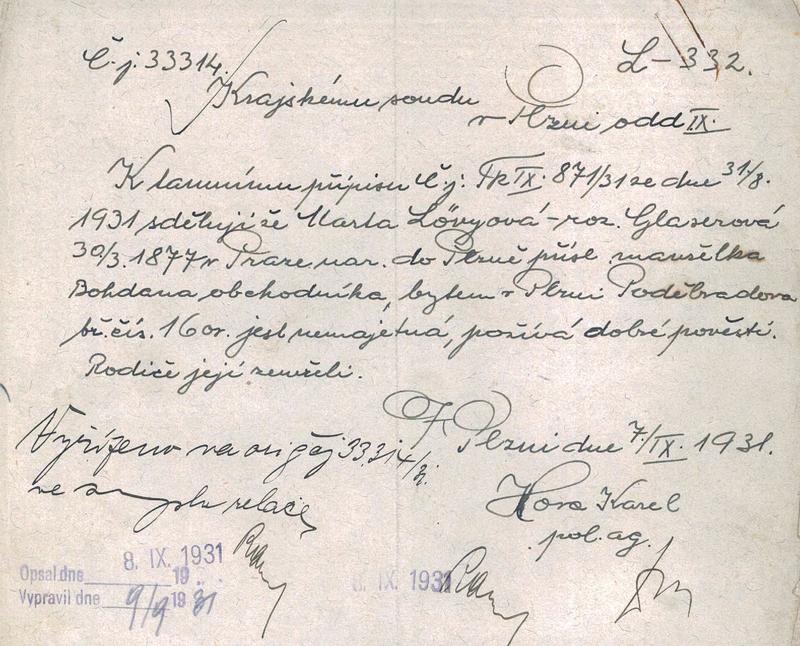 Č.j. 33314. L-332.
Krajskému soudu
v Plzni odd IX.
K tamnímu přípisu Č.j. Tk IX. 871/31 ze dne 31/8.
1931 sděluji že Marta Lövyová - roz. Glaserová
30/3. 1877 v Praze nar. do Plzně přísl. manželka
Bohdana obchodníka, bytem v Plzni Poděbradova
tř. čís. 16 or. jest nemajetná, požívá dobré pověsti.
Rodiče její zemřeli.
V Plzni dne 7/IX. 1931.
Vyřízeno na orig čj 33.314/31.
ve relace
Hora Karel
pol. ag.
8. IX. 1931
Opsal dne 19
Vypravil dne 9/9 1931
8. IX. 1931